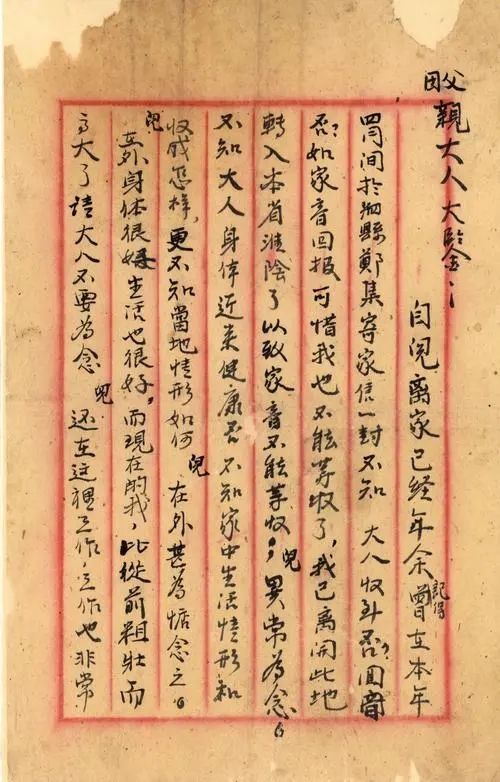 父母親大人大鑒：
自児离家已经年余記得曾在本年
四月间於縣鄭集寄家信一封不知 大人收到否？回音
否？如家音回报可惜我也不能等收了，我已离開此地
轉入本省淮陰了以致家音不能等收，兒異常為念。
不知大人身体近来健康否不知家中生活情形和
收成怎样，更不知當地情形如何 兒在外甚為惦念之。
兒在外身体很好生活也很好，而現在的我，比從前粗壮而
高大了请大人不要為念 兒还在这裡工作，工作也非常